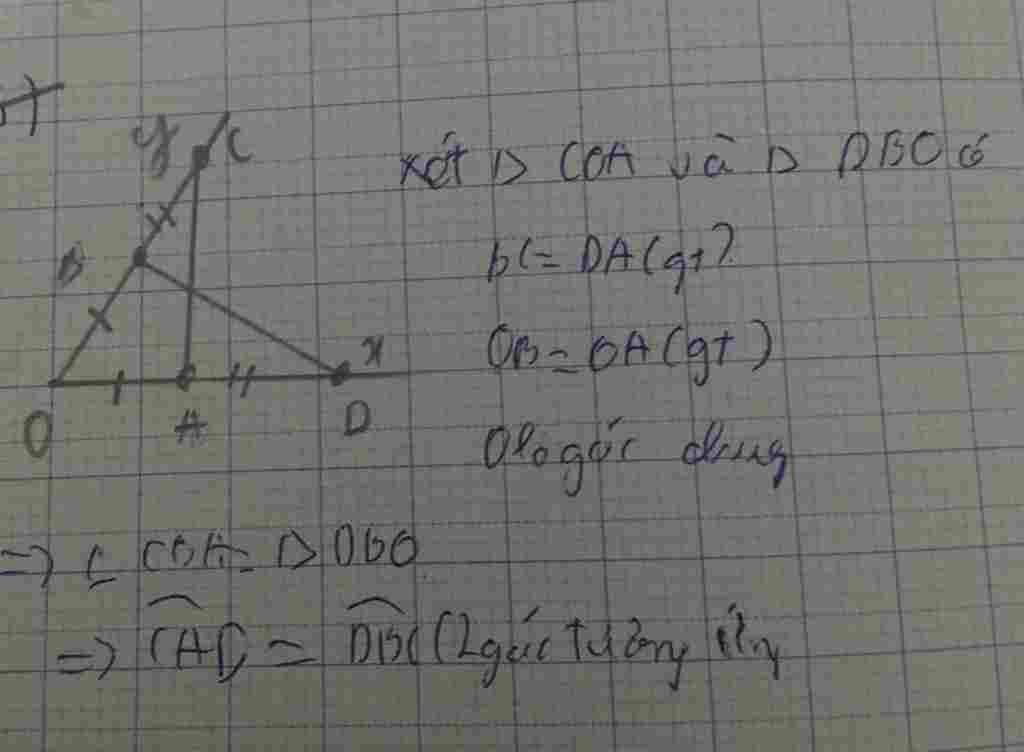 y C
Xét Δ COA và Δ DBO có
B
BC = DA (gt)
OB = OA (gt)
x
O A D
O là góc chung
=> Δ COA = Δ DBO
=> CAD = DBC (2 góc tương ứng